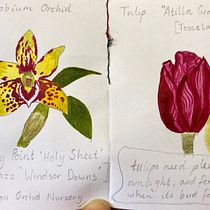 obium Orchid
y Point 'Holy Sheet'
azz 'Windsor Downs'
on Orchid Nursery
Tulip "Atilla
tulips need
sunlight, and
when its bud